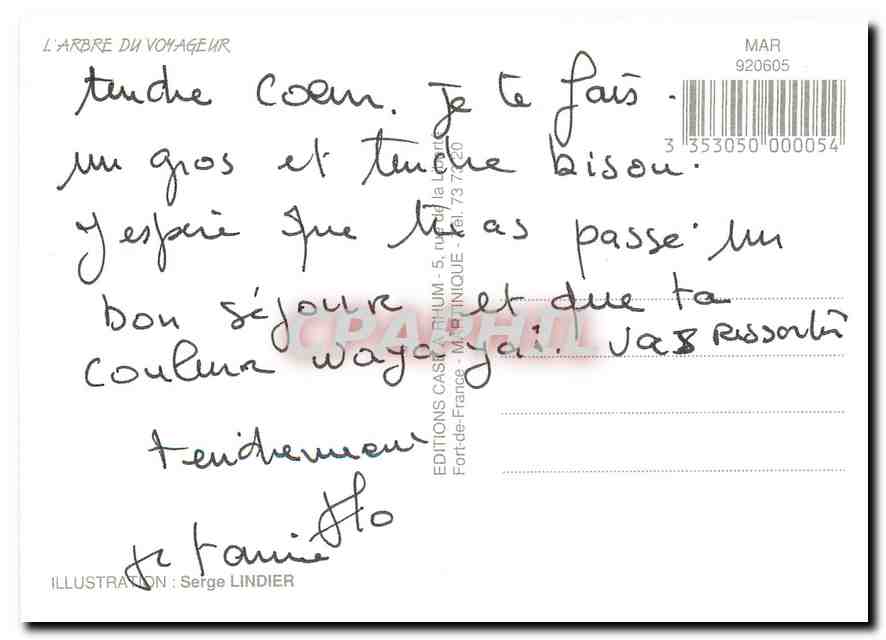 L'ARBRE DU VOYAGEUR
MAR
920605
3 353050 000054
tendre coeur. Je te fais
un gros et tendre bisou.
J'espère que tu as passé un
bon séjour et que ta
couleur waga ya. vas ressortir
tendrement
Flo
EDITIONS CASE A RHUM - 5, rue de la Liberté
Fort-de-France - MARTINIQUE - Tel. 73 73 20
CPAPHIL
ILLUSTRATION : Serge LINDIER